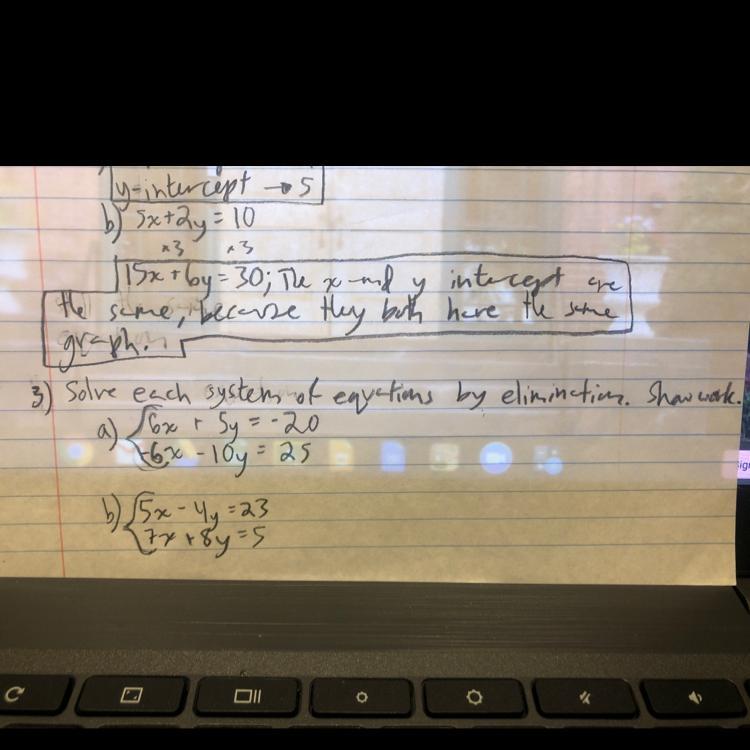 y=intercept → 5
b) 5x+2y=10
×3 ×3
15x+6y=30; The x and y intercept are
the same, because they both have the same
graph.
3) Solve each system of equations by elimination. Show work.
a) { 6x + 5y = -20
-6x - 10y = 25
b) { 5x - 4y = 23
7x + 8y = 5